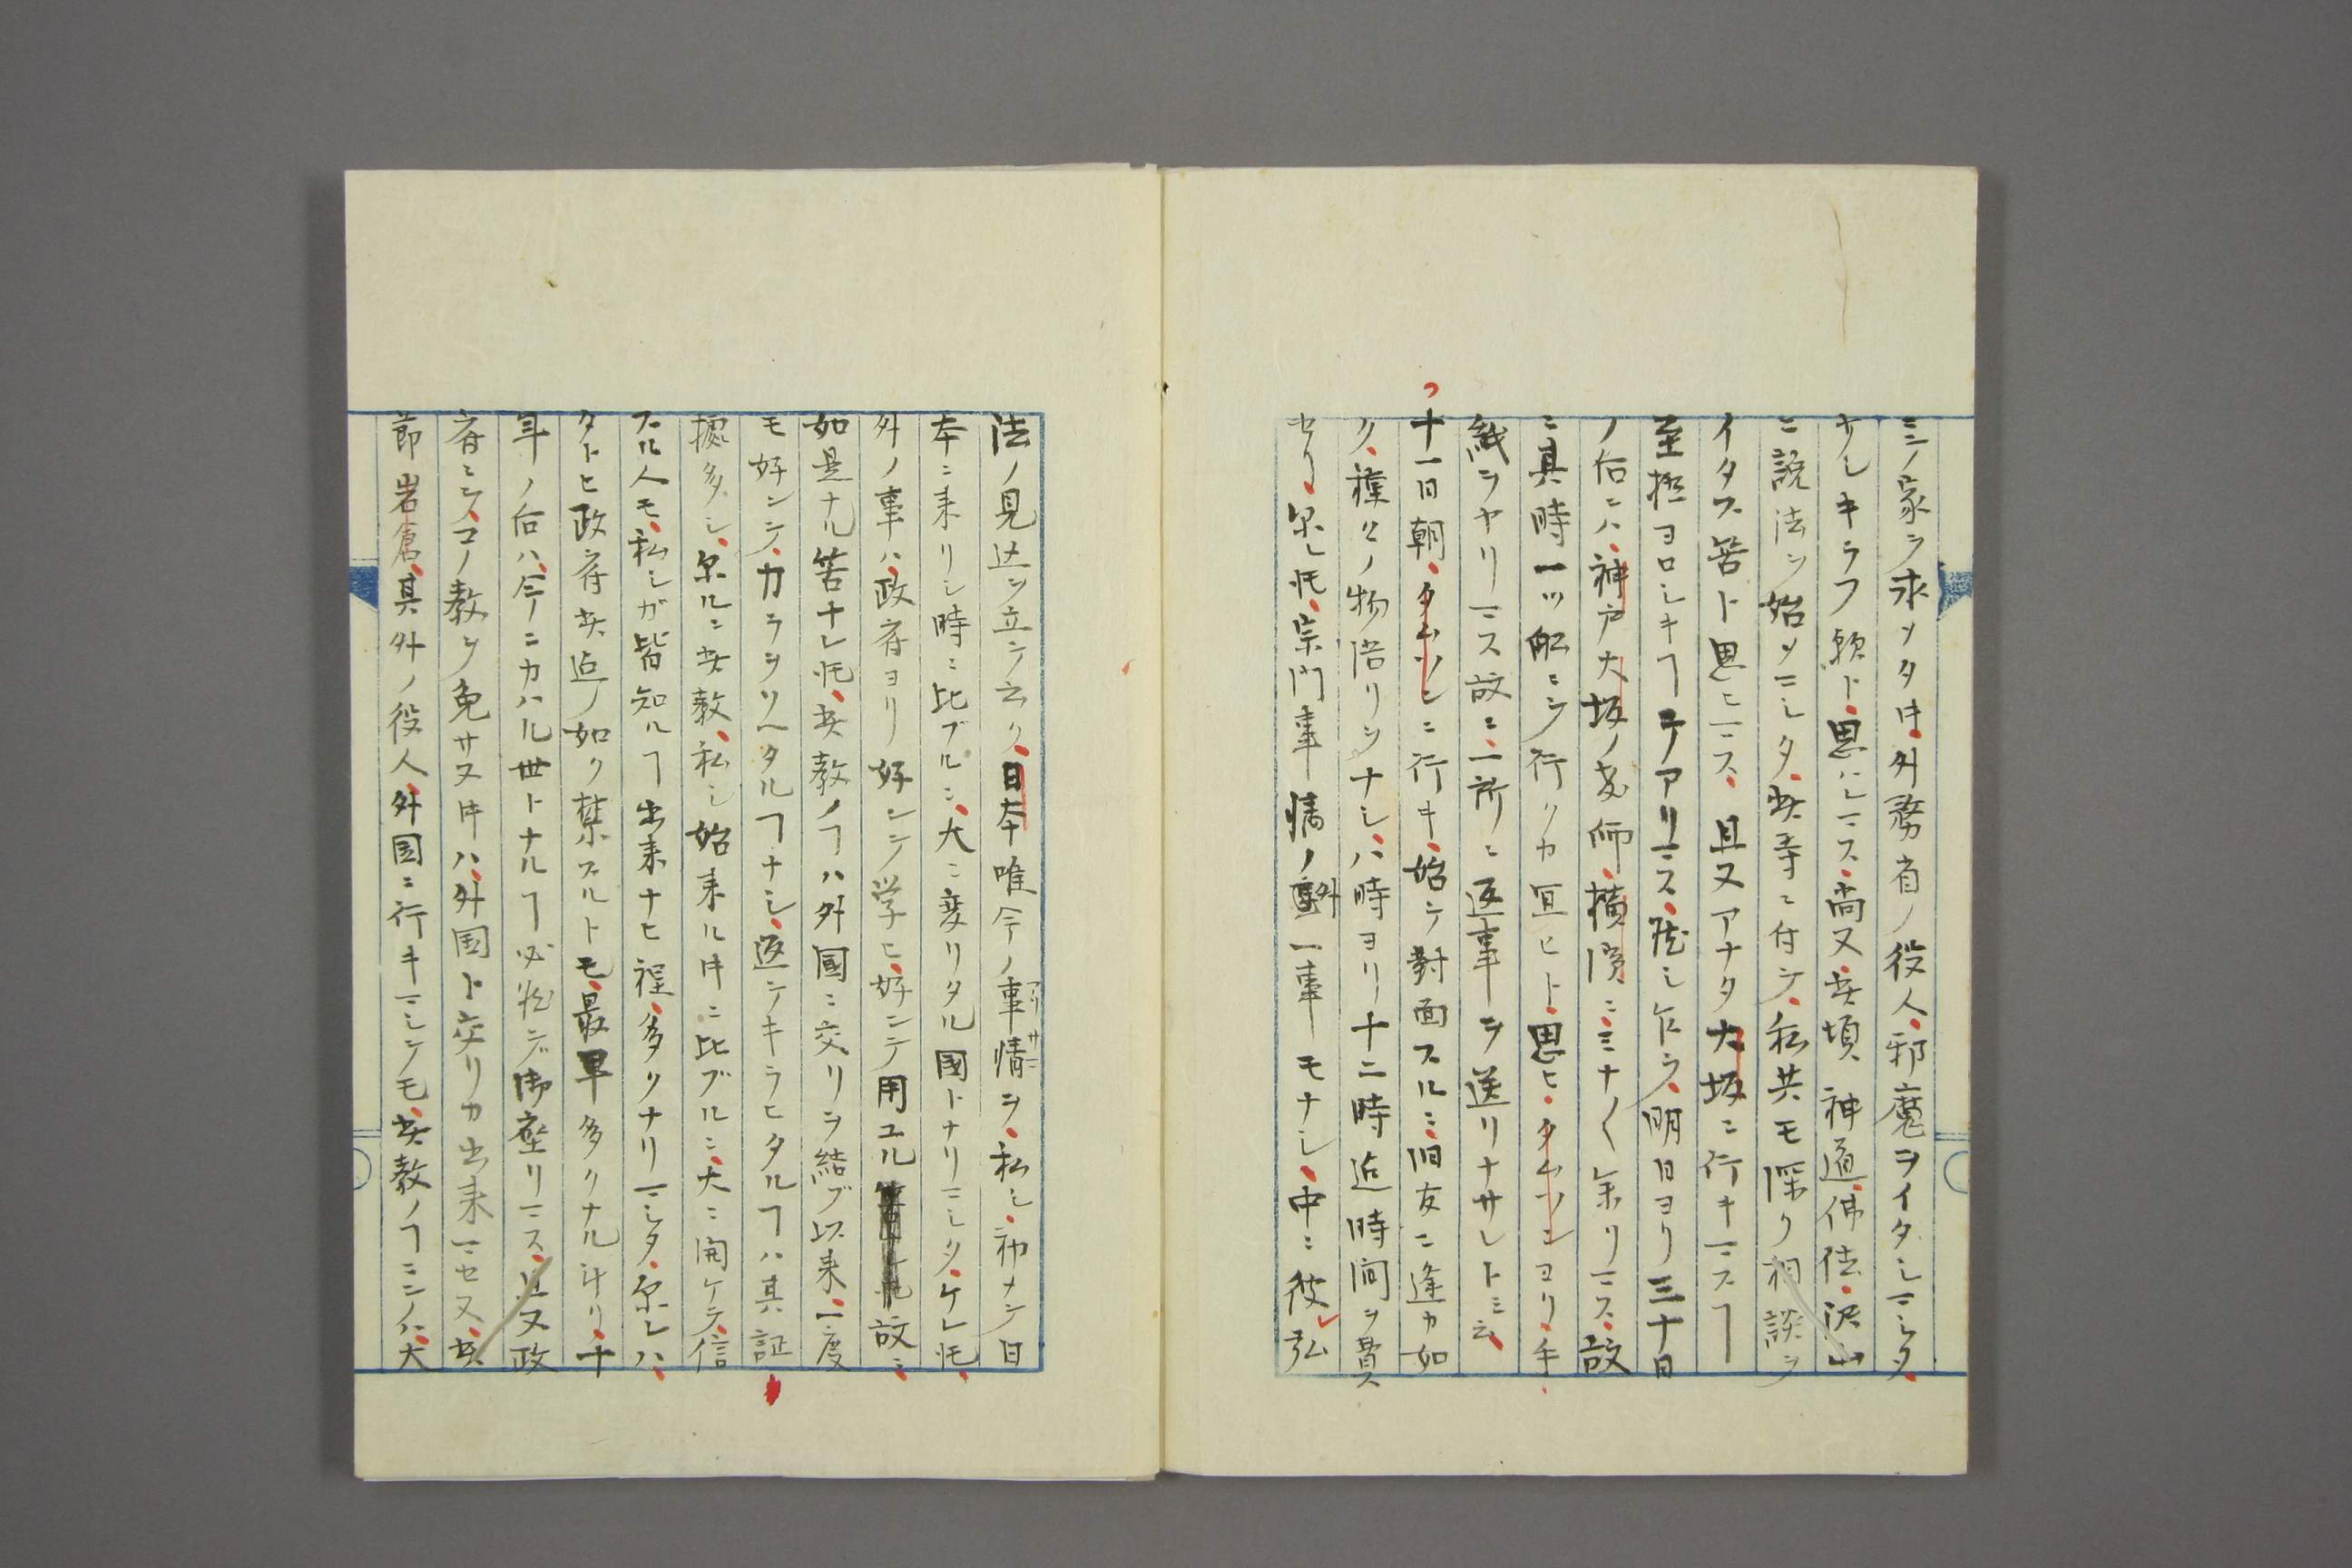 ミノ家ヲ求メタ𪜈、外務省ノ役人、邪魔ヲイタシマシタ、
サレキラフ願ト、思ハレマス、尚又、此頃神道佛法、沢山
ニ説法ヲ始メマシタ、此等ニ付テ、私共モ深ク相談ヲ
イタス筈ト思ヒマス、且又アナタ大坂ニ行キマスヿ
至極ヨロシキヿデアリマス、然シ乍ラ、明日ヨリ三十日
ノ后ニハ、神戸大坂ノ教師、横濱ニ、ミナ〳〵参リマス、故
ニ其時一ツ舩ニテ行クカ宜ヒト、思ヒ、タムソンヨリ、手
紙ヲヤリマス故ニ、一所ニ返事ヲ送リナサレトミ云、
十一日朝、タムソンニ行キ、始テ對面スルニ、旧友ニ逢カ如
ク、種々ノ物語リヲナシ、八時ヨリ十二時迠時間ヲ費ス
セリ、尔レ𪜈、宗門事情ノ外一事モナシ、中ニ彼レ弘
法ノ見込ヲ立テ云ク、日本唯今ノ事情ヲ、私シ、初メテ日
アリサマ
本ニ来リシ時ニ比ブルニ、大ニ変リタル國トナリマシタ、ケレ𪜈、
外ノ事ハ、政府ヨリ好ンシテ学ヒ、好ンテ用ユル故ニ、
如是ナル筈ナレ𪜈、此教ノヿハ外國ニ交リヲ結ブ以来、一度
モ好ンシテ、力ラヲソヘタルヿナシ、返テキラヒタルヿハ其証
據多シ、尔ルニ此教、私シ始来ル𪜈ニ比ブルニ、大ニ開ケテ、信
スル人モ、私シガ皆知ルヿ出来ナヒ程、多クナリマシタ、尔レハ、
タトヒ政府此迠ノ如ク禁スルトモ、最早多クナル計リ、十
年ノ后ハ、今ニカハル世トナルヿ必然デ御座リマス、且又政
府ニテ、コノ教ヲ免サヌ𪜈ハ、外国ト交リカ出来マセヌ、此
節岩倉、其外ノ役人、外国ニ行キマシテモ、此教ノヿニテハ、大